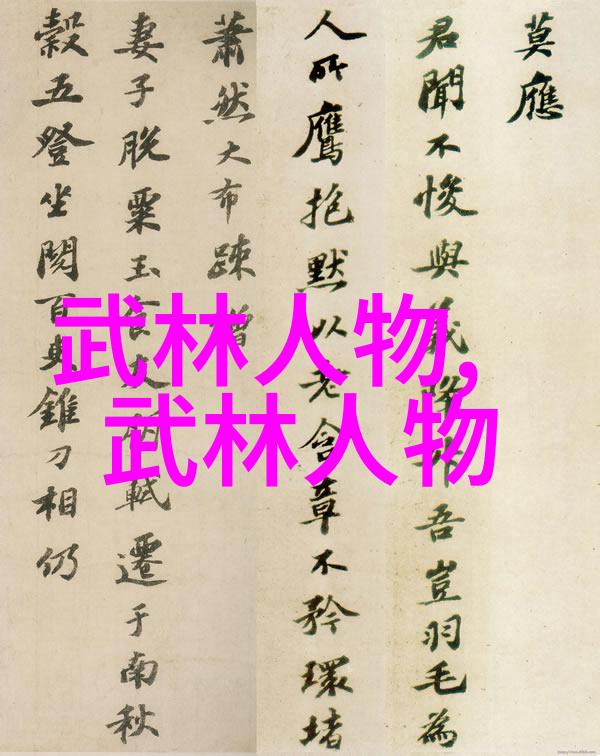 莫應
君聞不悛與義降升吾豈羽毛為
人所鷹抱默以老含章不矜環堵
蕭然大布疎繒
妻子脫粟玉食遷于南秋
穀五登坐閱百與錐刀相仍
武林人物,
武林人物